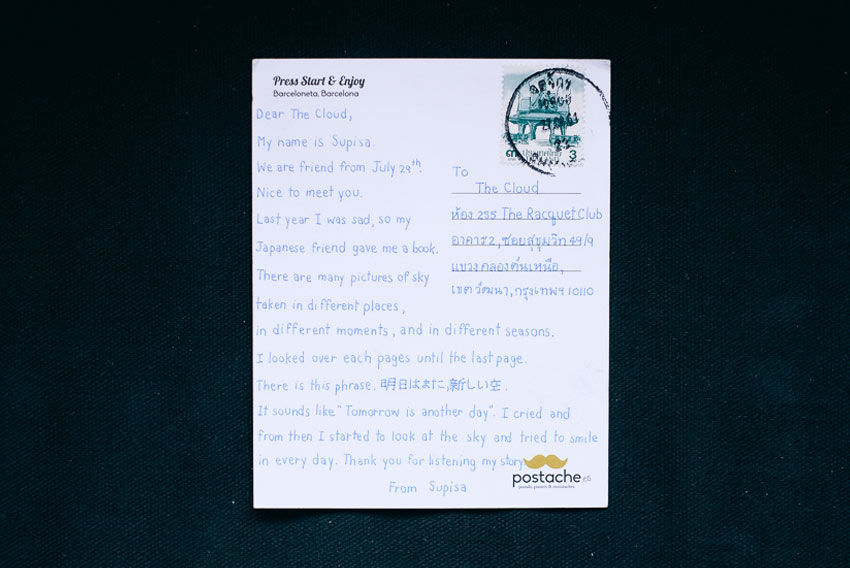 Press Start & Enjoy
Barceloneta, Barcelona
Dear The Cloud,
My name is Supisa.
We are friend from July 29th.
Nice to meet you.
Last year I was sad, so my
Japanese friend gave me a book.
There are many pictures of sky
taken in different places,
in different moments, and in different seasons.
I looked over each pages until the last page.
There is this phrase. 明日はまた新しい空.
It sounds like "Tomorrow is another day". I cried and
from then I started to look at the sky and tried to smile
in every day. Thank you for listening my story
From Supisa
ประเทศไทย
3
To
The Cloud
ห้อง 255 The Racquet Club
อาคาร 2, ซอยสุขุมวิท 49/9
แขวงคลองตันเหนือ,
เขตวัฒนา, กรุงเทพฯ 10110
postache